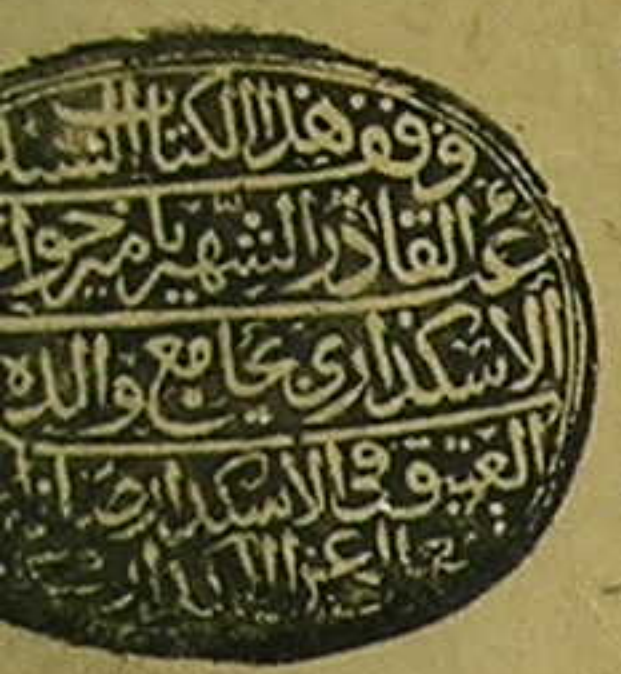 وقف هذا الكتاب السيد
عبد القادر الشهير بامير خواجه
الاسكداري بجامع والده
العتيق في الاسكدار